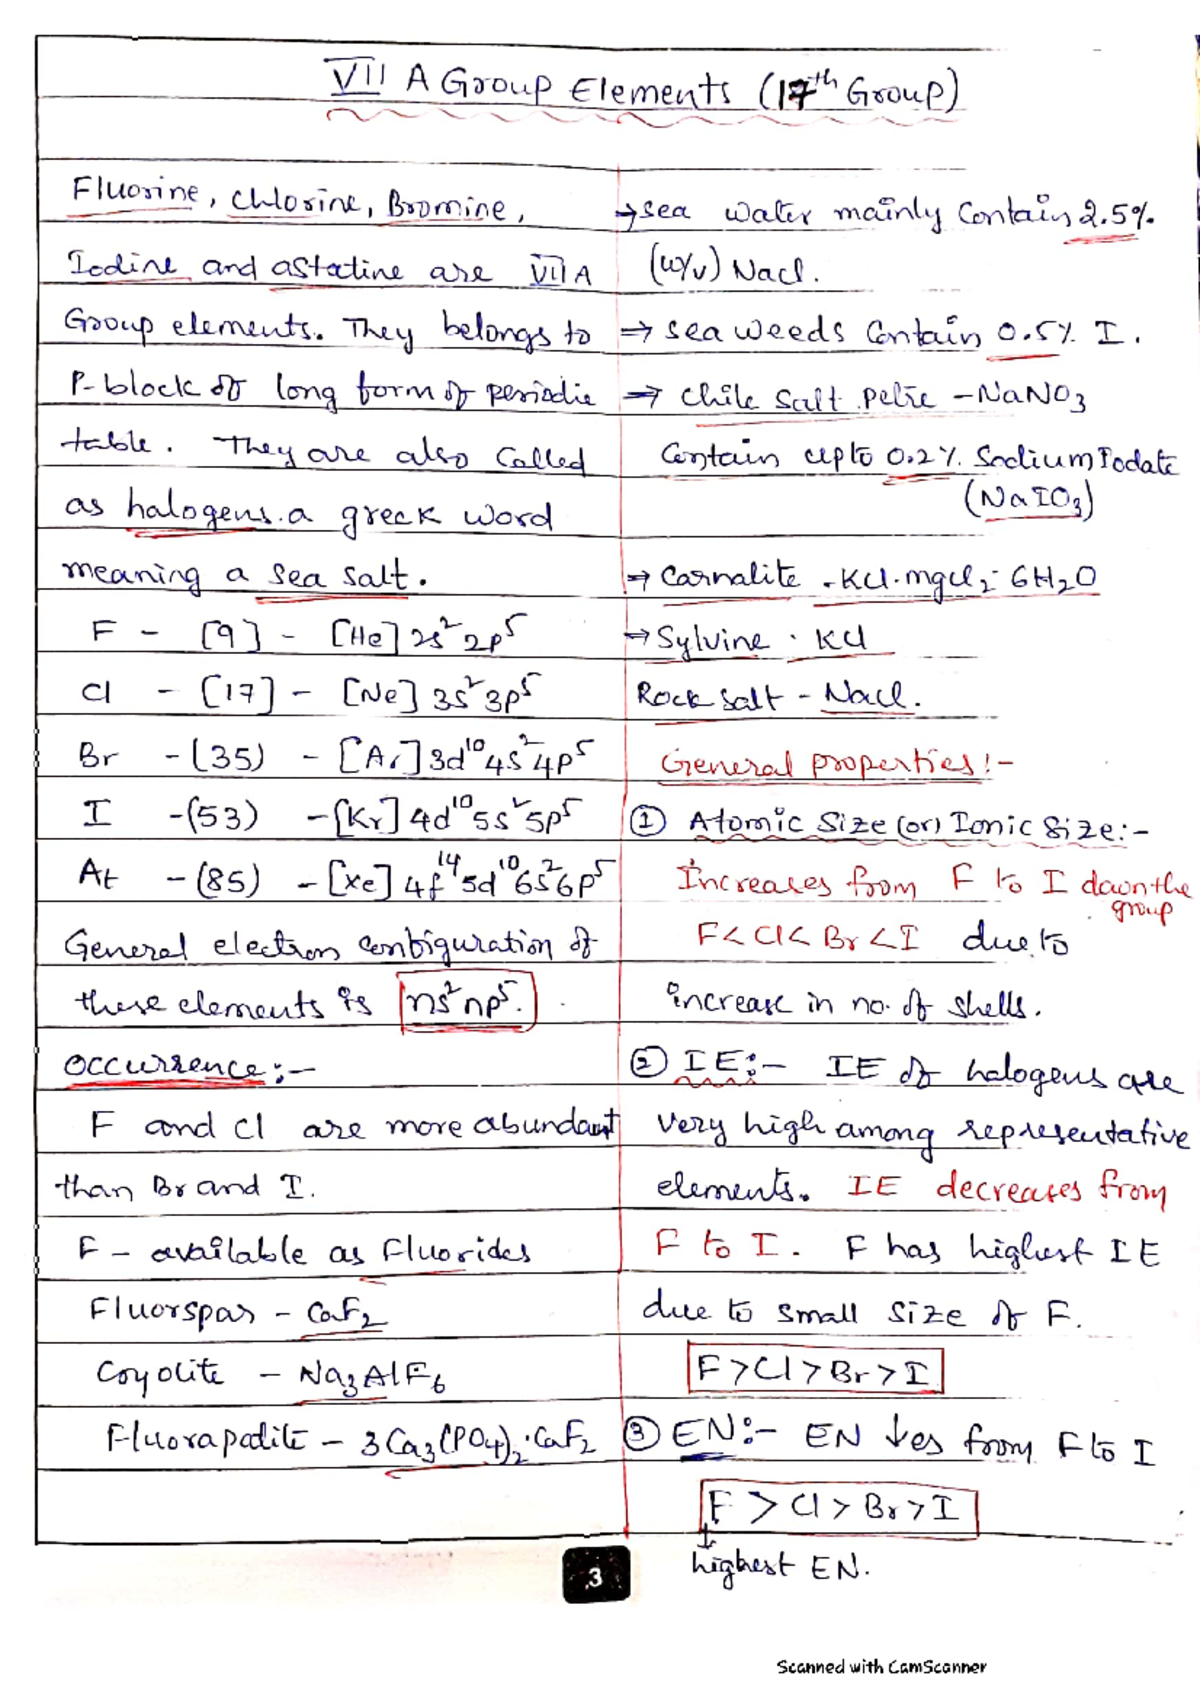 VII A Group Elements (17th Group)
Fluorine, chlorine, Bromine,
Iodine and astatine are VII A
Group elements. They belongs to
P-block of long form of periodic
table. They are also called
as halogens. a greek word
meaning a sea salt.
F - [9] - [He] 2s² 2p⁵
Cl - [17] - [Ne] 3s² 3p⁵
Br - (35) - [Ar] 3d¹⁰ 4s² 4p⁵
I - (53) - [Kr] 4d¹⁰ 5s² 5p⁵
At - (85) - [Xe] 4f¹⁴ 5d¹⁰ 6s² 6p⁵
General electron configuration of
these elements is ns² np⁵.
Occurrence :-
F and Cl are more abundant
than Br and I.
F - available as Fluorides
Fluorspar - CaF₂
Cryolite - Na₃AlF₆
Fluorapatite - 3Ca₃(PO₄)₂·CaF₂
→ sea water mainly contain 2.5%
(w/v) Nacl.
→ sea weeds contain 0.5% I.
→ chile salt petre - NaNO₃
contain upto 0.2% Sodium Iodate
(NaIO₃)
→ Carnalite - KCl·mgCl₂·6H₂O
→ Sylvine · KCl
Rock salt - Nacl.
General properties :-
① Atomic Size (or) Ionic Size :-
Increases from F to I down the
group
F < Cl < Br < I due to
increase in no. of shells.
② IE :- IE of halogens are
very high among representative
elements. IE decreases from
F to I. F has highest IE
due to small size of F.
F > Cl > Br > I
③ EN :- EN ↓es from F to I
F > Cl > Br > I
highest EN.
3
Scanned with CamScanner